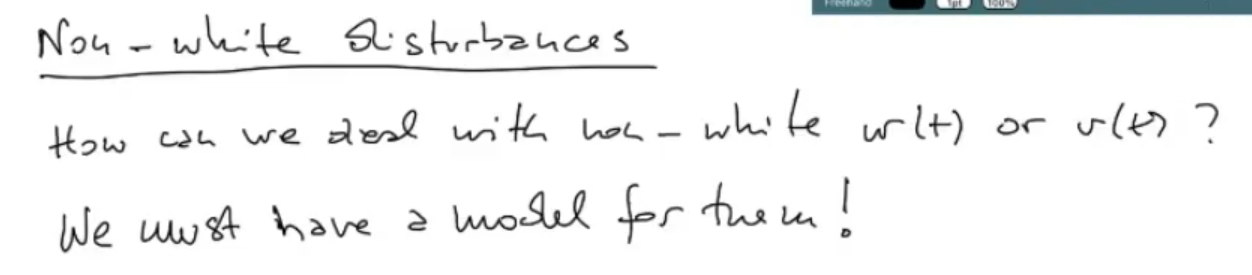 Freehand 1pt 100%
Non-white disturbances
How can we deal with non-white w(t) or v(t)?
We must have a model for them!